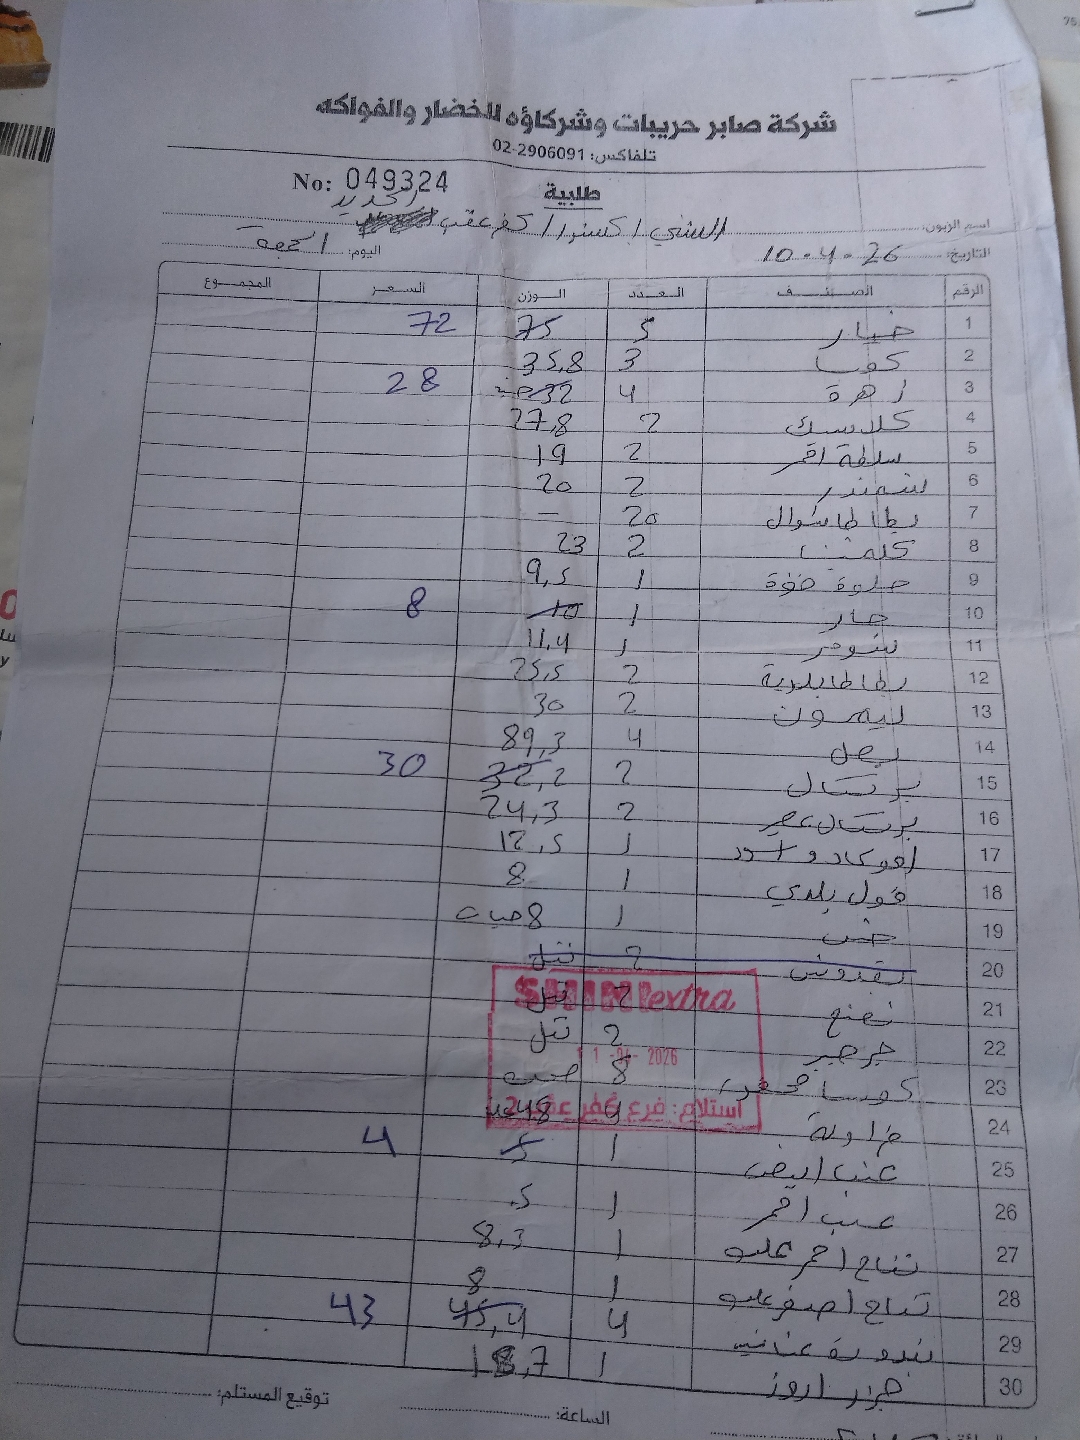 شركة صابر حريبات وشركاؤه للخضار والفواكه
تلفاكس: 02-2906091
No: 049324
طلبية
اسم الزبون: السني / كفر عقب الجديد
التاريخ: 10-4-26 اليوم: الجمعة
الرقم الصنف العدد الوزن السعر المجموع
1 خيار 5 75 72
2 كوسا 3 35,8
3 زهرة 4 32 28
4 كلاسك 2 27,8
5 سلطة احمر 2 19
6 شمندر 2 20
7 بطاطا شوال 20 —
8 كلمنتينا 2 23
9 حلوة 1 9,5
10 حار 1 10 8
11 1 11,4
12 بطاطا بلدية 2 25,5
13 ليمون 2 30
14 بصل 4 89,3
15 برتقال 2 32,2 30
16 برتقال عصير 2 24,3
17 افوكادو اسود 1 12,5
18 فول بلدي 1 8
19 خس 1 8 حبات
20 بقدونس 2
21 نعنع 2
22 جرجير 2
23 كوسا محفورة 8
24 فراولة 4 48
25 عنب ابيض 1 5 4
26 عنب احمر 1 5
27 تفاح احمر علبه 1 8,3
28 تفاح اصفر علبه 1 8
29 بندورة عناقيد 4 45,4 43
30 1 18,7
SHINI extra
11-04-2026
استلام: فرع كفر عقب 2
توقيع المستلم:
الساعة: